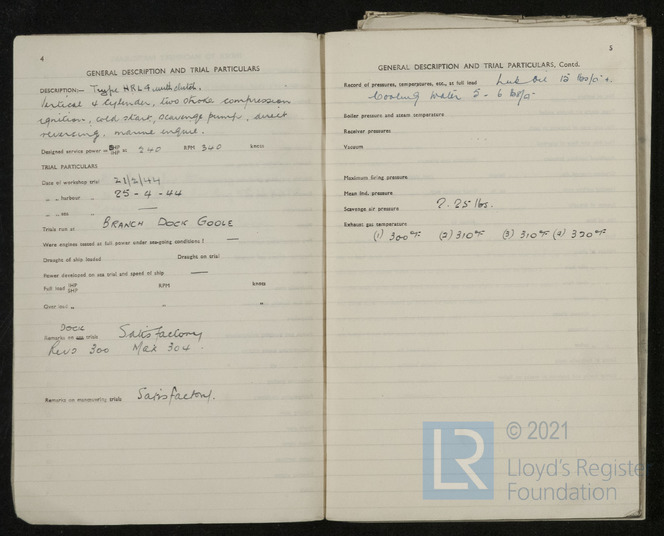 4
GENERAL DESCRIPTION AND TRIAL PARTICULARS
DESCRIPTION:— Type HRL4 with clutch.
Vertical 4 cylinder, two stroke compression
ignition, cold start, scavenge pump, direct
reversing, marine engine.
Designed service power BHP at 240 RPM 340 knots
TRIAL PARTICULARS
Date of workshop trial 21/2/44
„ „ harbour „ 25-4-44
„ „ sea „ —
Trials run at BRANCH DOCK GOOLE
Were engines tested at full power under sea-going conditions? —
Draught of ship loaded Draught on trial
Power developed on sea trial and speed of ship —
Full load IHP SHP RPM knots
Over load „ „ „
DOCK
Remarks on sea trials Satisfactory
Revs 300 Max 304.
Remarks on manœuvring trials Satisfactory.
5
GENERAL DESCRIPTION AND TRIAL PARTICULARS, Contd.
Record of pressures, temperatures, etc., at full load Lub oil 15 lbs/o"
Cooling water 5 - 6 lbs/o"
Boiler pressure and steam temperature
Receiver pressures
Vacuum
Maximum firing pressure
Mean ind. pressure
Scavenge air pressure 2.25 lbs.
Exhaust gas temperature
(1) 300°F (2) 310°F (3) 310°F (4) 320°F
LR
© 2021
Lloyd's Register
Foundation